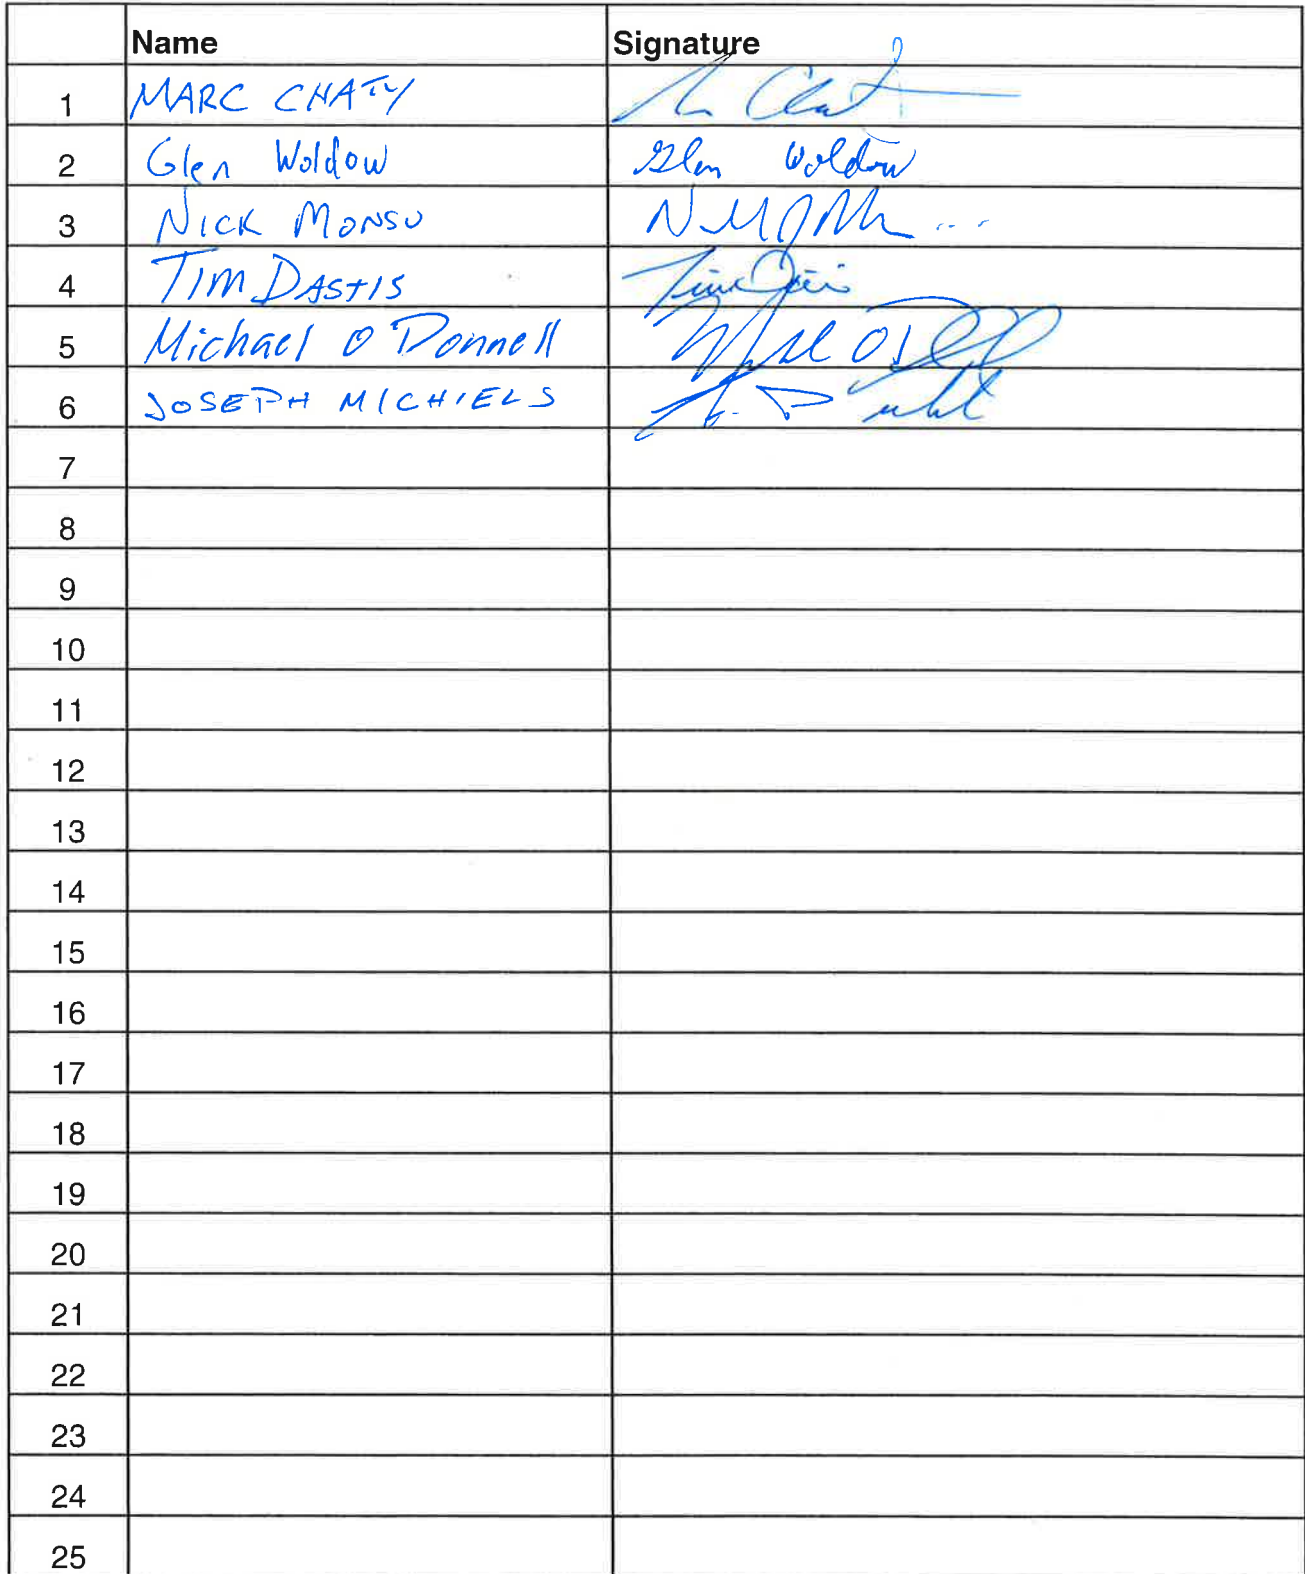 Name Signature
1 MARC CHATY
2 Glen Woldow Glen Woldow
3 NICK MONSU
4 TIM DASTIS
5 Michael O'Donnell
6 JOSEPH MICHIELS
7
8
9
10
11
12
13
14
15
16
17
18
19
20
21
22
23
24
25